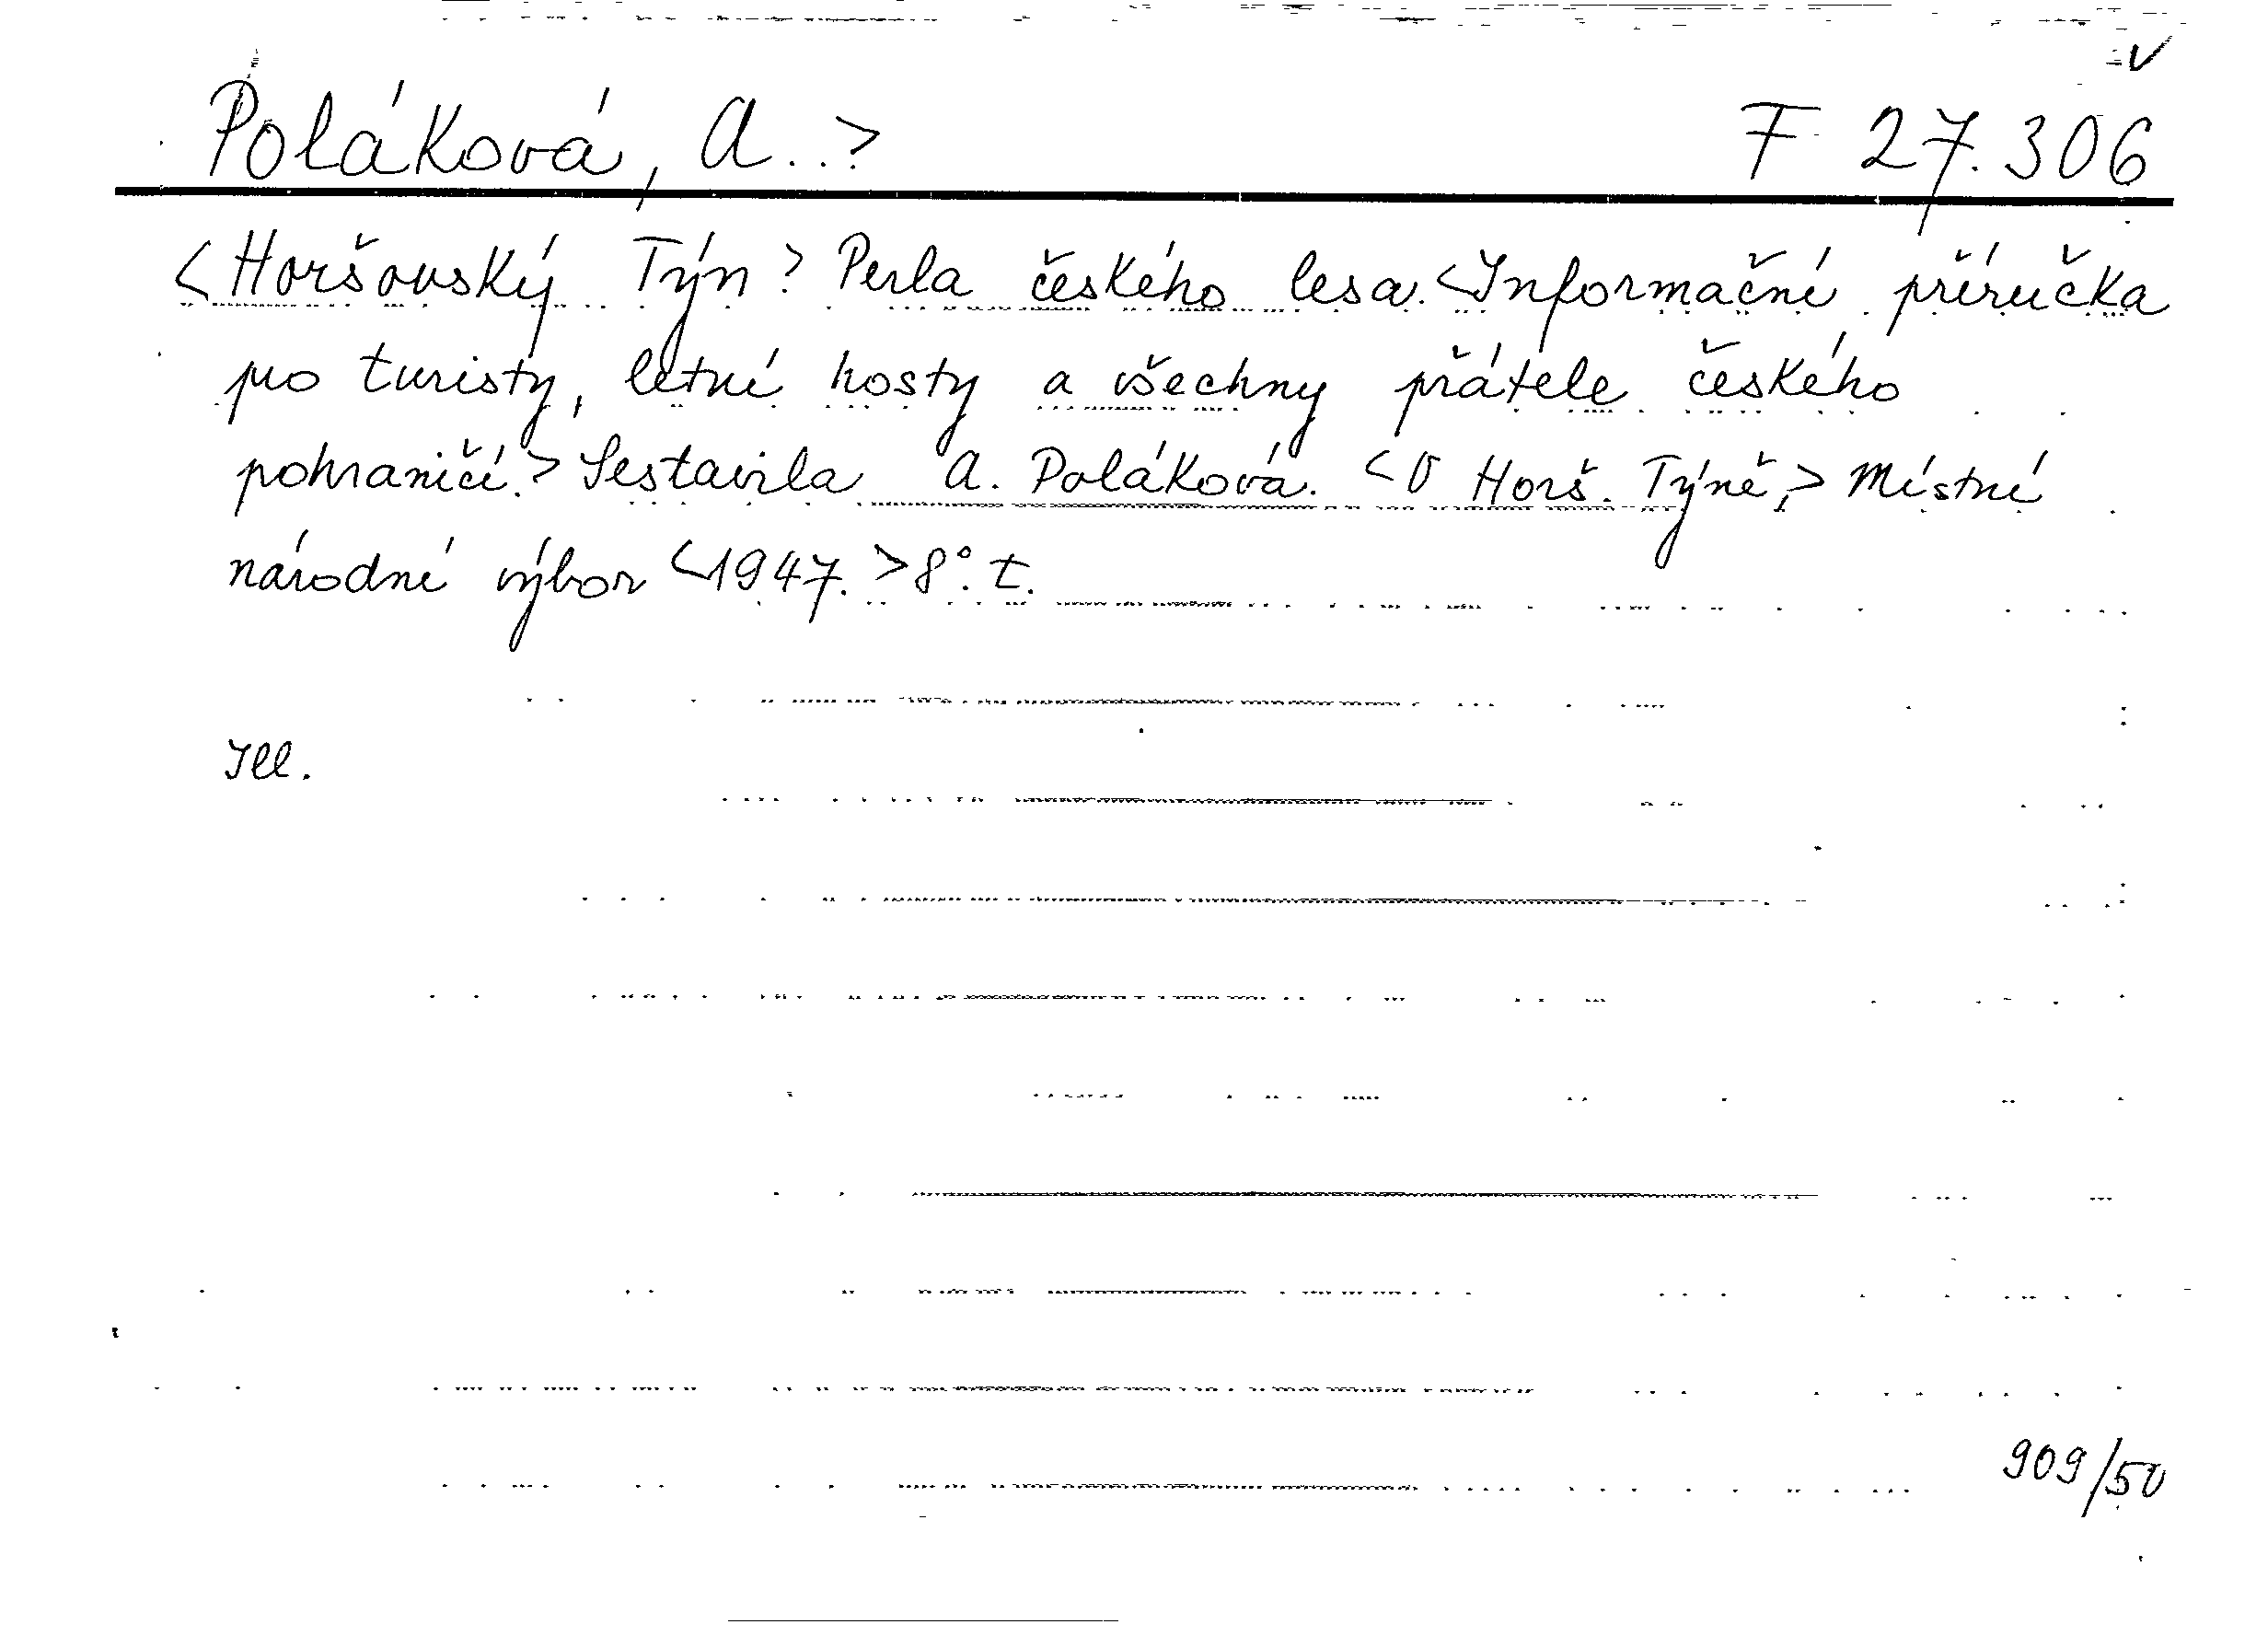 v
Poláková, A..> F 27.306
<Horšovský Týn> Perla českého lesa. <Informační příručka
pro turisty, letní hosty a všechny přátele českého
pohraničí.> Sestavila A. Poláková. <V Horš. Týně,> Místní
národní výbor <1947.> 8°. t.
Ill.
909/50